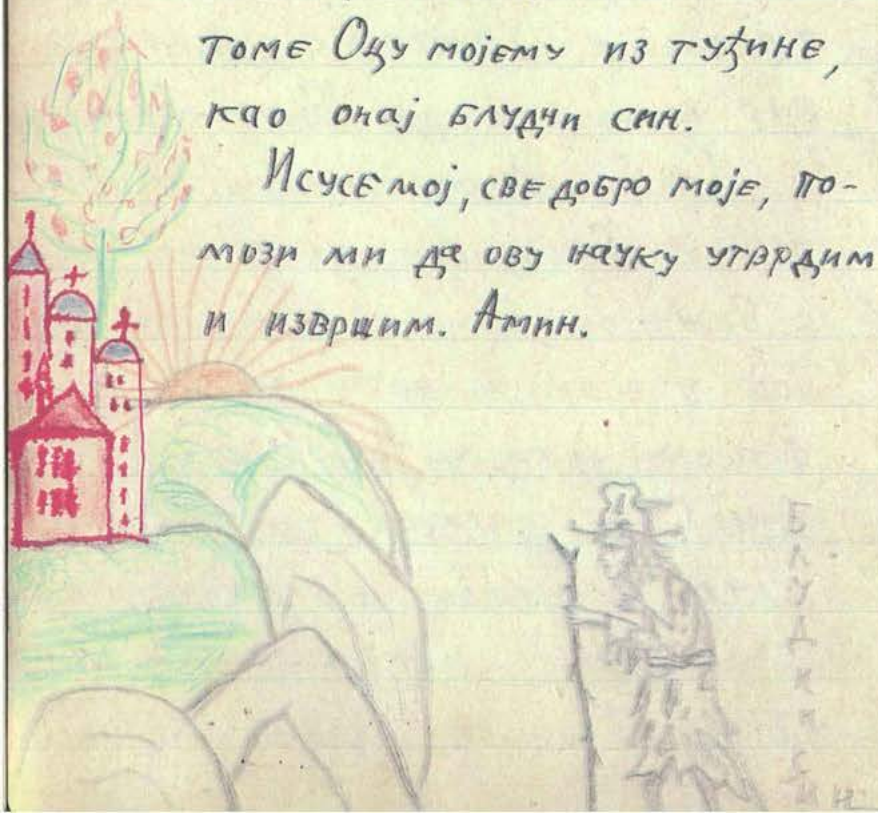 томе Оцу мојему из туђине,
као онај блудни син.
Исусе мој, све добро моје, по-
мози ми да ову науку утврдим
и извршим. Амин.
БЛУДНИ СИН